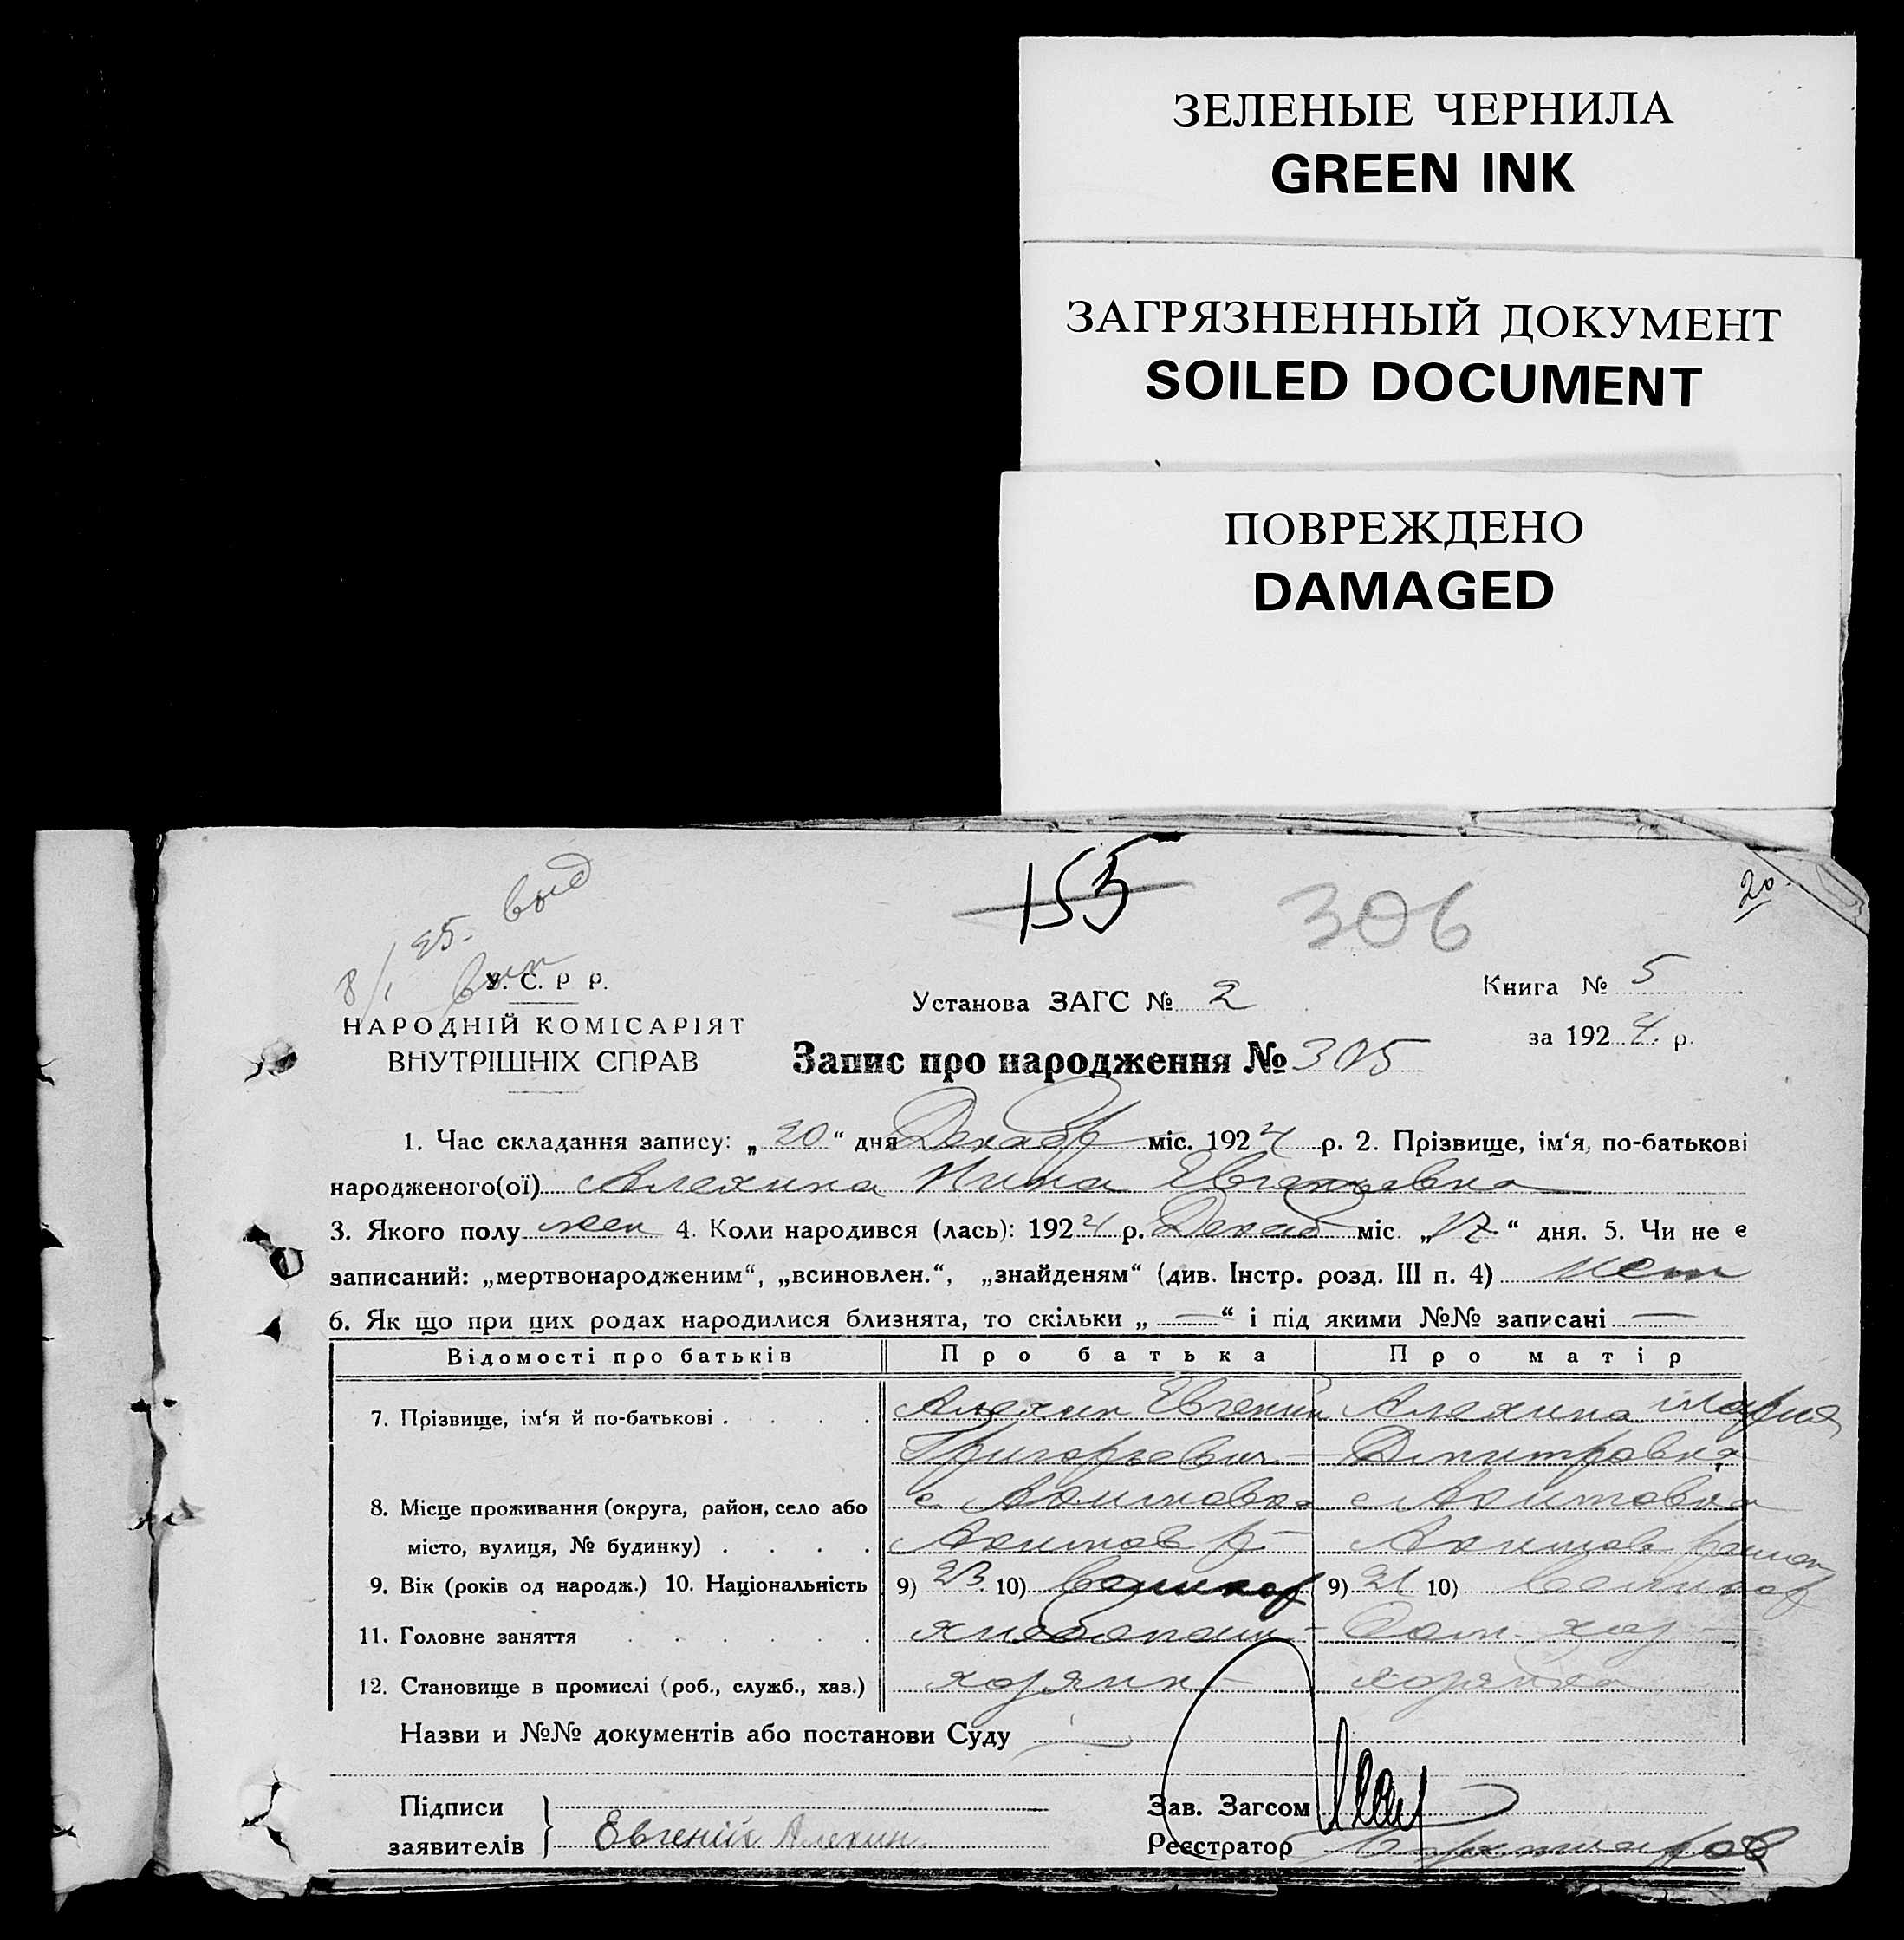 ЗЕЛЕНЫЕ ЧЕРНИЛА
GREEN INK
ЗАГРЯЗНЕННЫЙ ДОКУМЕНТ
SOILED DOCUMENT
ПОВРЕЖДЕНО
DAMAGED
155
306
20
8/1 25.
У. С. Р Р.
НАРОДНІЙ КОМІСАРІЯТ
ВНУТРІШНІХ СПРАВ
Установа ЗАГС № 2
Книга № 5
за 1924 р.
Запис про народження № 305
1. Час складання запису: „20“ дня Декабр міс. 1924 р. 2. Прізвище, ім‘я, по-батькові
народженого(ої) Алехина Нина Евгеньевна
3. Якого полу жен 4. Коли народився (лась): 1924 р. Декаб міс. „17“ дня. 5. Чи не є
записаний: „мертвонародженим“, „всиновлен.“, „знайденям“ (див. Інстр. розд. III п. 4) нет
6. Як що при цих родах народилися близнята, то скільки „—“ і під якими №№ записані —
Відомості про батьків Про батька Про матір
7. Прізвище, ім‘я й по-батькові . . . . . Алехин Евгений Алехина Мария
Григорьевич Дмитровна
8. Місце проживання (округа, район, село або с. Акимовка с Акимовка
місто, вулиця, № будинку) . . . . Акимов р Акимов район
9. Вік (років од народж.) 10. Національність 9) 23 10) 9) 21 10)
11. Головне заняття . . . . . . хлебопаш Дом. хоз
12. Становище в промислі (роб., служб., хаз.) хозяин хозяйка
Назви и №№ документів або постанови Суду —
Підписи
заявителів Евгеній Алехин
Зав. Загсом
Реєстратор